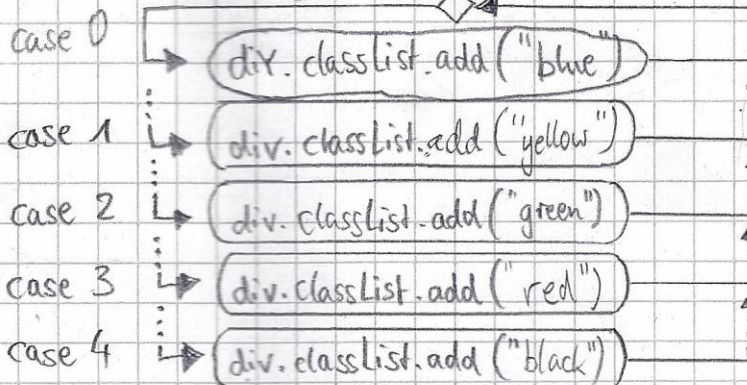 case 0 div.classList.add("blue")
case 1 div.classList.add("yellow")
case 2 div.classList.add("green")
case 3 div.classList.add("red")
case 4 div.classList.add("black")